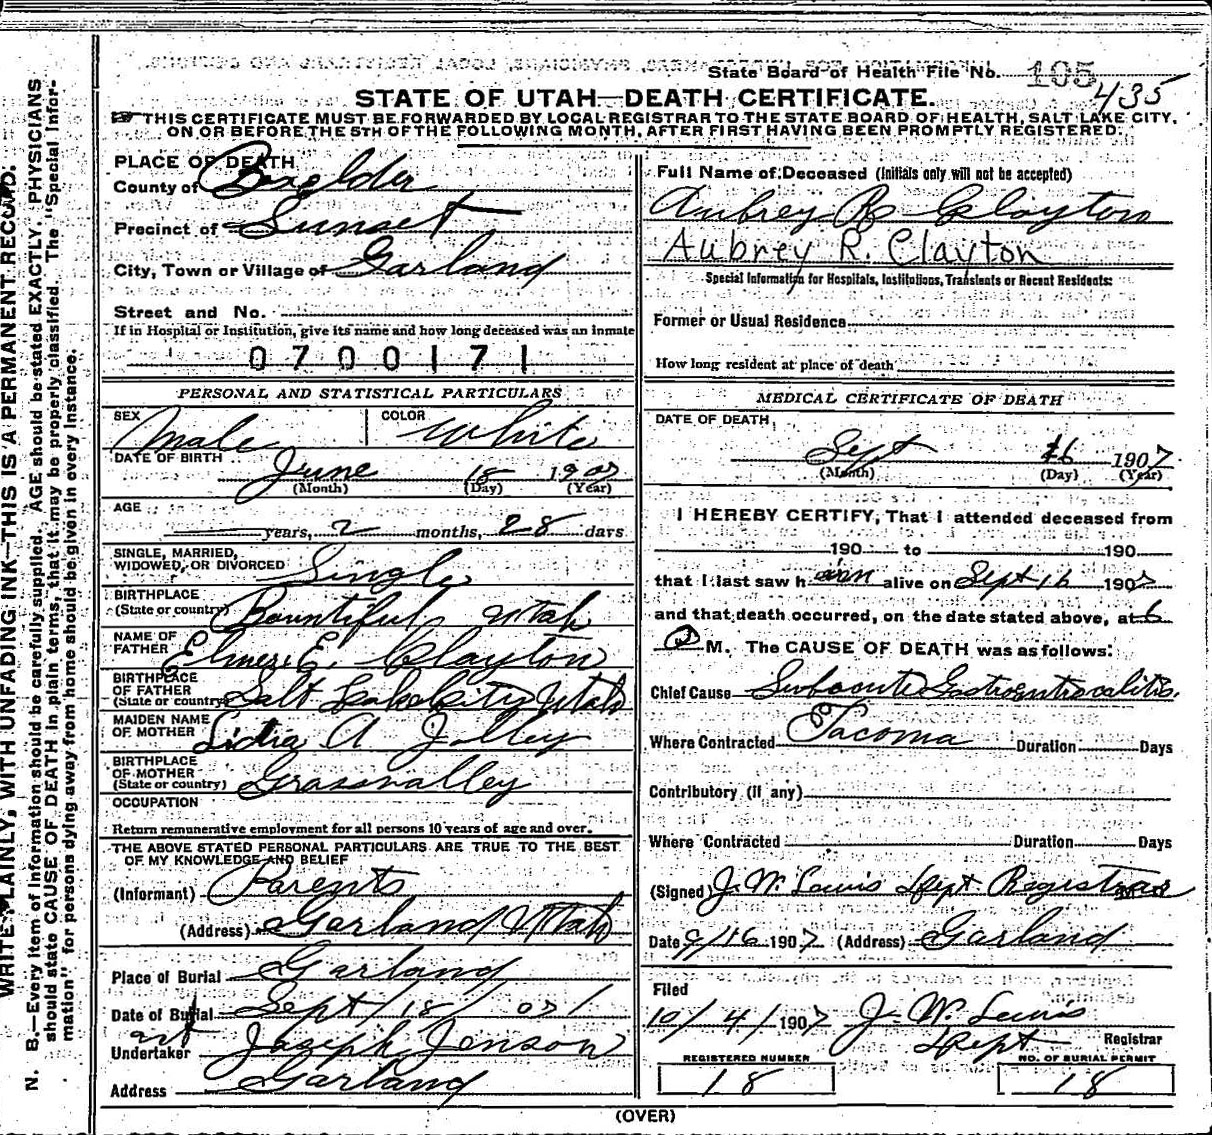 State Board of Health File No. 195
435
STATE OF UTAH—DEATH CERTIFICATE.
THIS CERTIFICATE MUST BE FORWARDED BY LOCAL REGISTRAR TO THE STATE BOARD OF HEALTH, SALT LAKE CITY,
ON OR BEFORE THE 5TH OF THE FOLLOWING MONTH, AFTER FIRST HAVING BEEN PROMPTLY REGISTERED.
PLACE OF DEATH
County of Boxelder
Precinct of Sunset
City, Town or Village of Garland
Street and No.
If in Hospital or Institution, give its name and how long deceased was an inmate
0700171
PERSONAL AND STATISTICAL PARTICULARS
SEX Male COLOR White
DATE OF BIRTH June 18 1907
(Month) (Day) (Year)
AGE
years, 2 months, 28 days
SINGLE, MARRIED,
WIDOWED, OR DIVORCED Single
BIRTHPLACE
(State or country) Bountiful Utah
NAME OF
FATHER Elmer E. Clayton
BIRTHPLACE
OF FATHER
(State or country) Salt Lake City Utah
MAIDEN NAME
OF MOTHER A Jolley
BIRTHPLACE
OF MOTHER
(State or country) Grassvalley
OCCUPATION
Return remunerative employment for all persons 10 years of age and over.
THE ABOVE STATED PERSONAL PARTICULARS ARE TRUE TO THE BEST
OF MY KNOWLEDGE AND BELIEF
(Informant) Parents
(Address) Garland Utah
Place of Burial Garland
Date of Burial Sept / 18 / 07
Undertaker Joseph Jenson
Address Garland
Full Name of Deceased (Initials only will not be accepted)
Aubrey R Clayton
Aubrey R. Clayton
Special Information for Hospitals, Institutions, Transients or Recent Residents:
Former or Usual Residence
How long resident at place of death
MEDICAL CERTIFICATE OF DEATH
DATE OF DEATH,
Sept 16 1907
(Month) (Day) (Year)
I HEREBY CERTIFY, That I attended deceased from
190 to 190
that I last saw h im alive on Sept 16 1907
and that death occurred, on the date stated above, at 6
M. The CAUSE OF DEATH was as follows:
Chief Cause Subacute Gastroenterocolitis.
Where Contracted Tacoma Duration Days
Contributory (if any)
Where Contracted Duration Days
(Signed) J. W. Lewis Dept Registrar
Date 9/16 1907 (Address) Garland
Filed
10/4/1907 J. W. Lewis
Dept Registrar
REGISTERED NUMBER NO. OF BURIAL PERMIT
18 18
(OVER)
WRITE PLAINLY, WITH UNFADING INK—THIS IS A PERMANENT RECORD.
N. B.—Every item of information should be carefully supplied. AGE should be stated EXACTLY. PHYSICIANS
should state CAUSE OF DEATH in plain terms, that it may be properly classified. The "Special Infor-
mation" for persons dying away from home should be given in every instance.